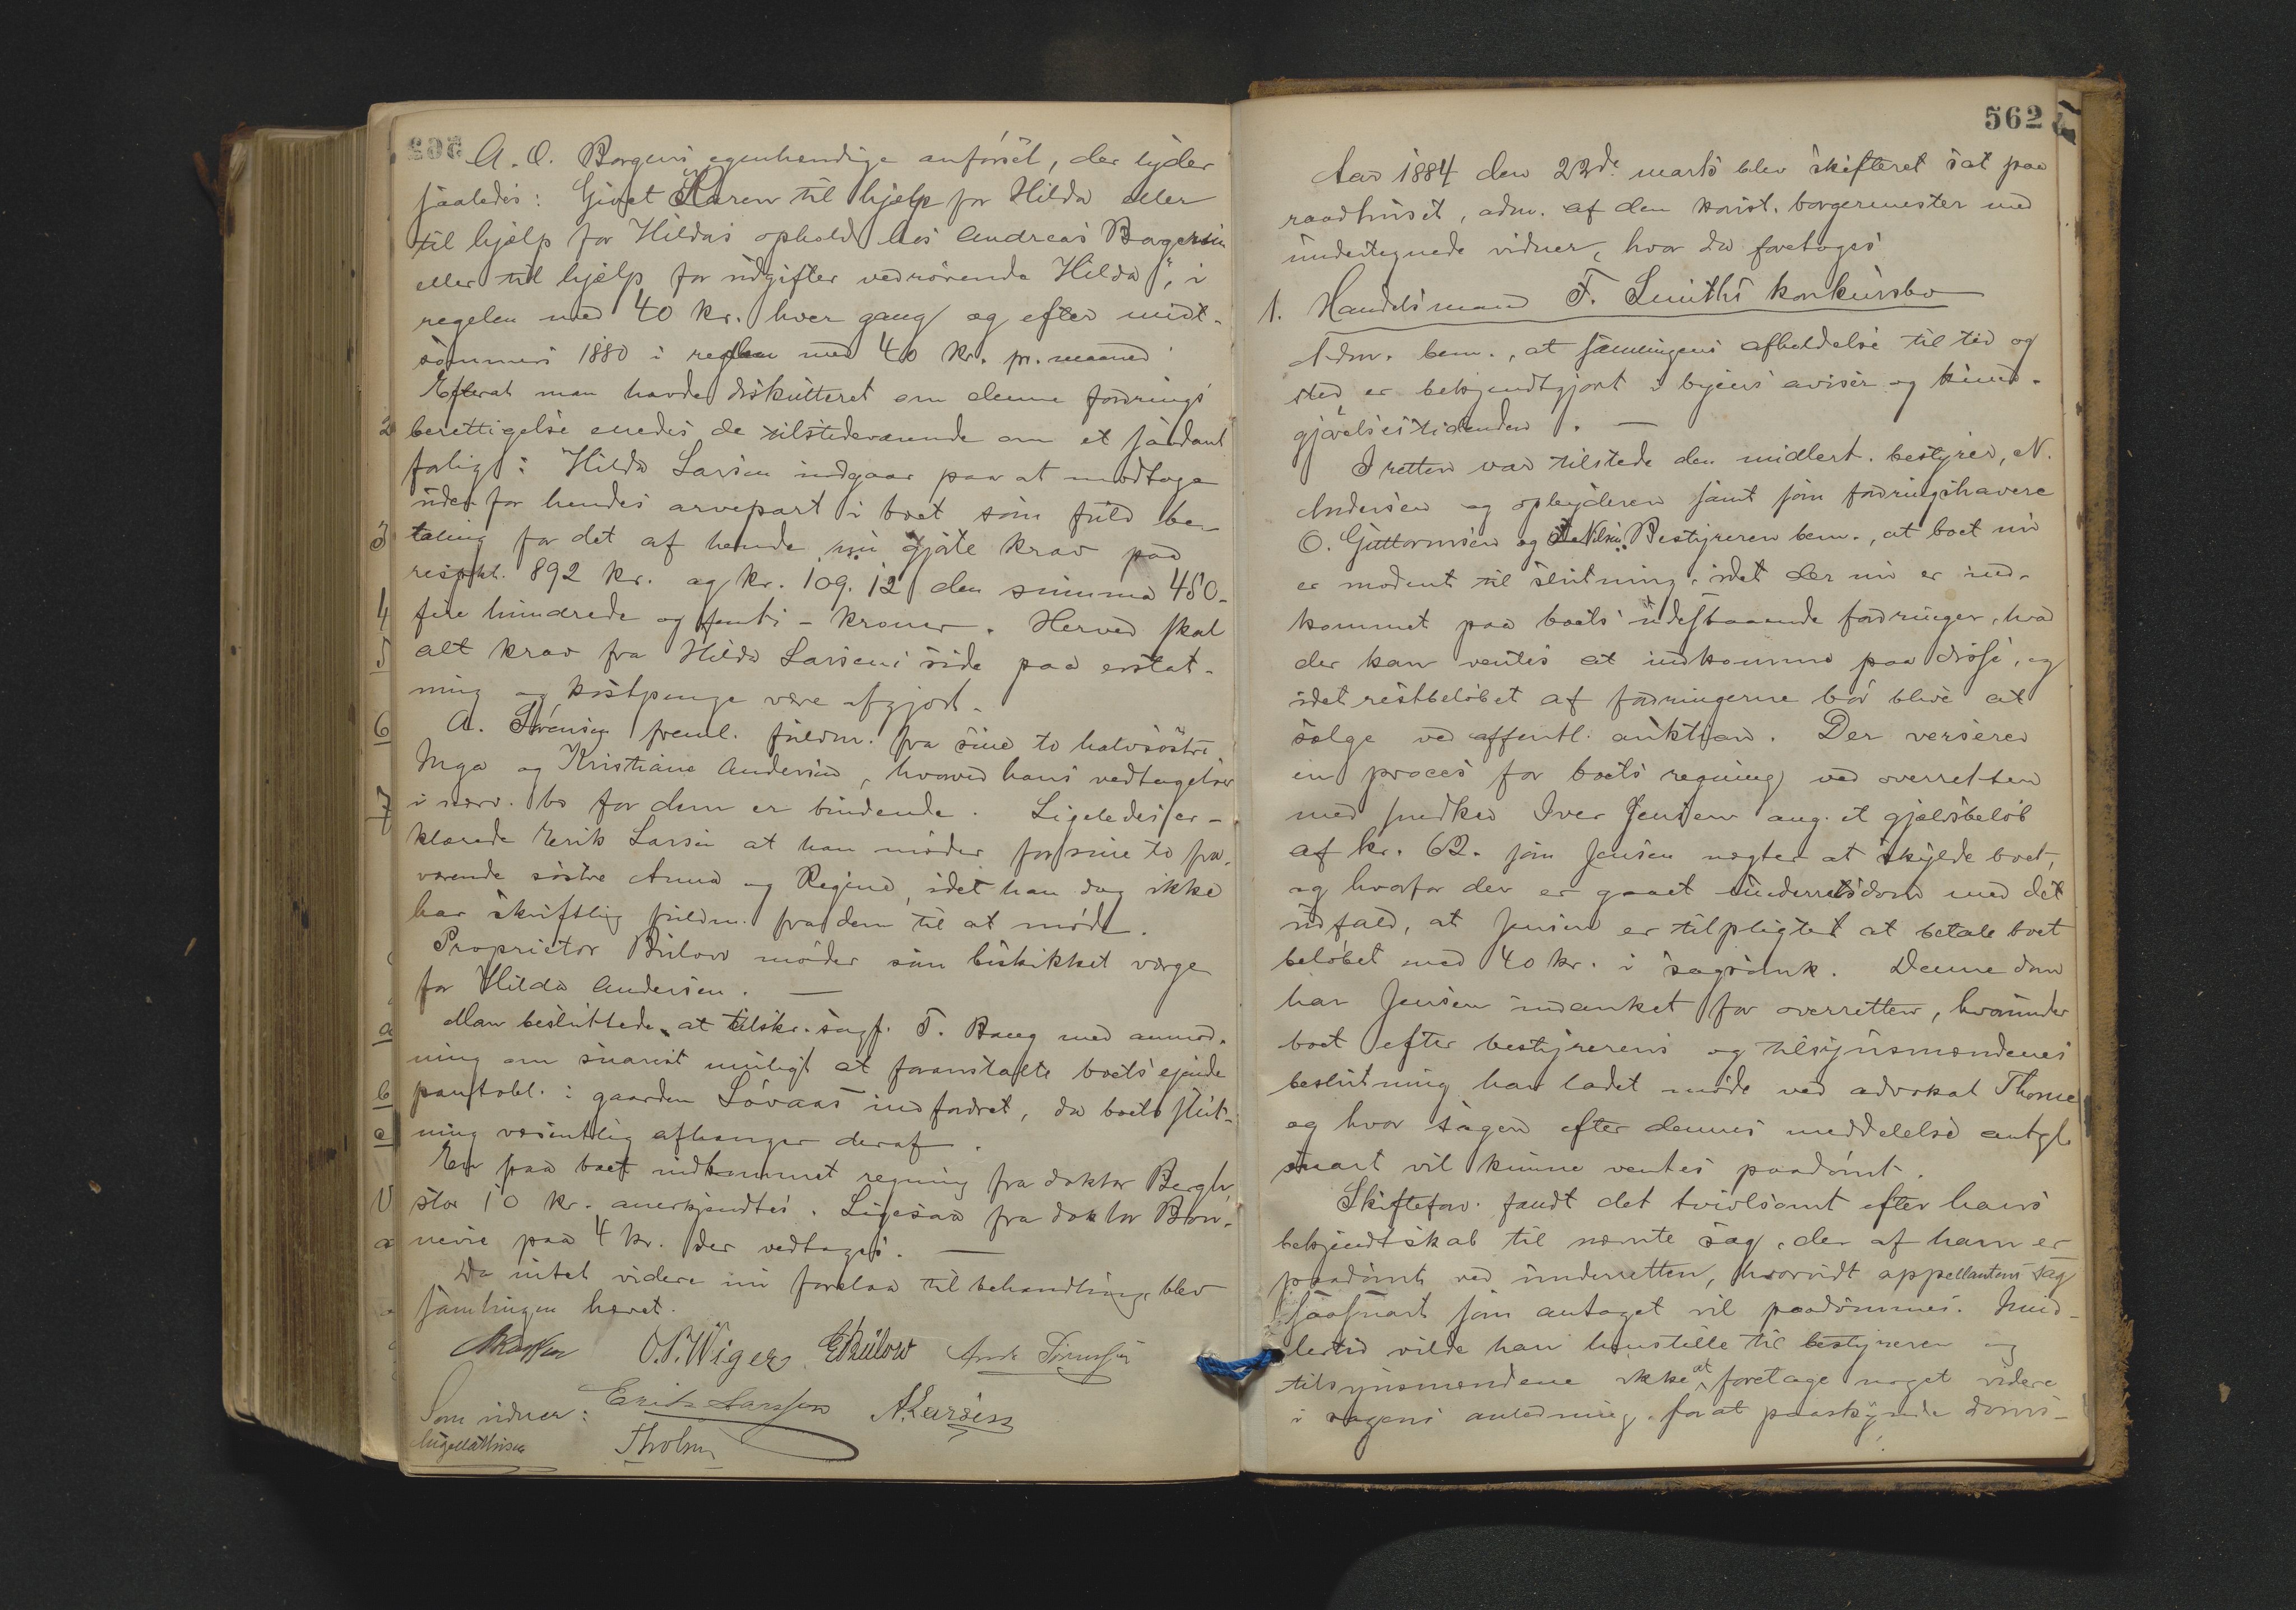 A. O. Borgens egenhændige anførsel, der lyder
saaledes: Givet Karen til hjælp for Hilda eller
til hjælp for Hildas ophold hos Andreas Borgersen
eller til hjælp for udgifter vedrørende Hilda", i
regelen med 40 kr. hver gang og efter midt-
sommers 1880 i reglen med 40 kr. pr. maaned
Efterat man havde diskutteret om denne fordrings
berettigelse enedes de tilstedeværende om et saadant
forlig: Hilda Larsen indgaar paa at modtage
uden for hendes arvepart i boet som fuld be-
taling for det af hende nu gjorte krav paa
respekt. 892 kr. og kr. 109.12 den summa 450-
fire hundrede og femti - kroner. Herved skal
alt krav fra Hilda Larsens side paa erstat-
ning og kostpenge være afgjort.
A. Sørensen freml. fuldm. fra sine to halvsøstre
Inga og Kristiane Andersen, hvorved hans vedtagelser
i nærv. bo for dem er bindende. Ligeledes er-
klærede Erik Larsen at han møder for sine to fra-
værende søstre Anna og Regine, idet han dog ikke
har skriftlig fuldm. fra dem til at møde.
Proprietær Bülow møder som beskikket værge
for Hilda Andersen. —
Man besluttede at tilskr. sagf. T. Baug med anmod-
ning om snarest muligt at foranstalte boets ejende
pantobl. i gaarden Løvaas indfordret, da boets slut-
ning væsentlig afhænger deraf.
En paa boet indkommet regning fra doktor Bergh,
stor 10 kr. anerkjendtes. Ligesaa fra doktor Bon-
nevie paa 4 kr. der vedtages. —
Da intet videre nu forelaa til behandling, blev
samlingen hævet.
O. P. Wiger EBülow
Som vidner: Erik Larssen A. Larsen
Tholm
562
Aar 1884 den 22de marts blev skifteret sat paa
raadhuset, adm. af den konst. borgermester med
undertegnede vidner, hvor da foretoges
1. Handelsmand F. Smiths konkursbo
Adm. bem., at samlingens afholdelse til tid og
sted er bekjendtgjort i byens aviser og kund-
gjørelsestidenden. —
I retten var tilstede den midlert. bestyrer, N.
Andersen og opbyderen samt som fordringshavere
O. Guttormsen og Nilsen. Bestyreren bem., at boet nu
er modent til slutning, idet der nu er ind-
kommet paa boets udestaaende fordringer, hvad
der kan ventes at indkomme paa disse, og
idet restbeløbet af fordringerne bør blive at
sælge ved offentl. auktion. Der verserer
en proces for boets regning ved overretten
med snedker Iver Jensen ang. et gjældsbeløb
af kr. 62. som Jensen nægter at skylde boet,
og hvorfor der er gaaet underretsdom med det
udfald, at Jensen er tilpligtet at betale boet
beløbet med 40 kr. i sagsomk. Denne dom
har Jensen indanket for overretten, hvorunder
boet efter bestyrerens og tilsynsmændenes
beslutning har ladet møde ved advokat Thorne
og hvor sagen efter dennes meddelelse antgl.
snart vil kunne ventes paadømt.
Skifteforv. fandt det tvivlsomt efter hans
bekjendtskab til nævnte sag, der af ham er
paadømt ved underretten, hvorvidt appellantens sag
saasnart som antaget vil paadømmes. Imid-
lertid vilde han henstille til bestyreren og
tilsynsmændene ikke at foretage noget videre
i sagens anledning, for at paaskynde doms-